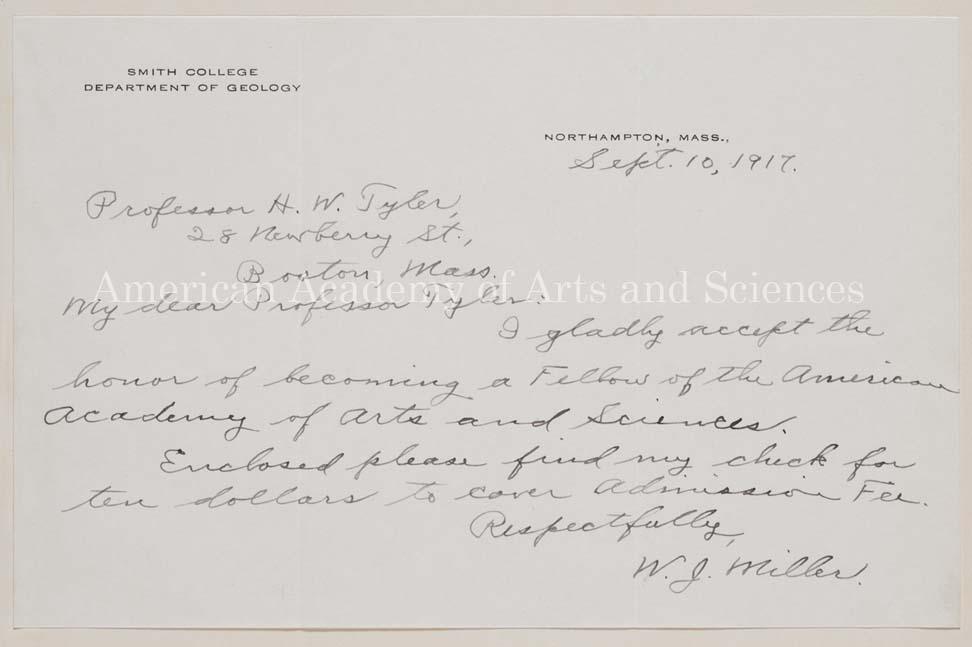 SMITH COLLEGE
DEPARTMENT OF GEOLOGY
NORTHAMPTON, MASS.,
Sept. 10, 1917.
Professor H. W. Tyler,
28 Newberry St.,
Boston, Mass.
American Academy of Arts and Sciences
My dear Professor Tyler:
I gladly accept the
honor of becoming a Fellow of the American
Academy of Arts and Sciences.
Enclosed please find my check for
ten dollars to cover Admission Fee.
Respectfully,
W. J. Miller.